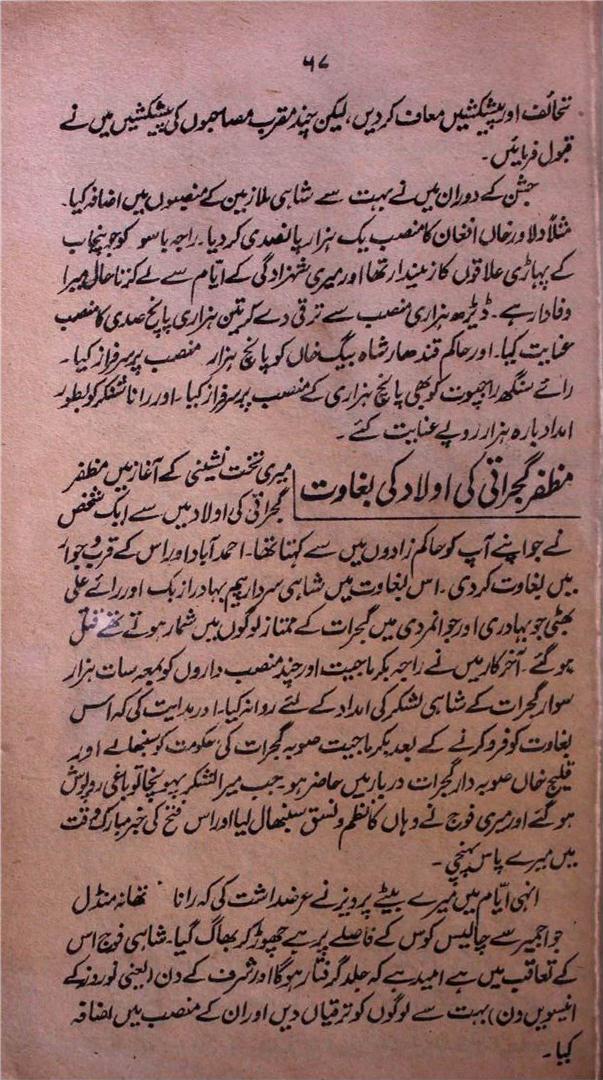 ۶۷
تحائف اور پیشکشیں معاف کر دیں، لیکن چند مقرب مصاحبوں کی پیشکشیں میں نے
قبول فرمائیں۔
جشن کے دوران میں نے بہت سے شاہی ملازمین کے منصبوں میں اضافہ کیا۔
مثلاً دلاور خاں افغان کا منصب یک ہزار پانصدی کر دیا۔ راجہ باسو کو جو پنجاب
کے پہاڑی علاقوں کا زمیندار تھا اور میری شہزادگی کے ایام سے لے کر تا حال میرا
وفادار ہے۔ ڈیڑھ ہزاری منصب سے ترقی دے کر تین ہزاری پانچ صدی کا منصب
عنایت کیا۔ اور حاکم قندھار شاہ بیگ خاں کو پانچ ہزار منصب پر سرفراز کیا۔
رائے سنگھ راجپوت کو بھی پانچ ہزاری کے منصب پر سرفراز کیا۔ اور رانا شنکر کو بطور
امداد بارہ ہزار روپے عنایت کئے۔
مظفر گجراتی کی اولاد کی بغاوت
میری تخت نشینی کے آغاز میں مظفر
گجراتی کی اولاد میں سے ایک شخص
نے جو اپنے آپ کو حاکم زادوں میں سے کہتا تھا۔ احمد آباد اور اس کے قرب و جوار
میں بغاوت کر دی۔ اس بغاوت میں شاہی سردار پیم بہادر ازبک اور رائے علی
بھٹی جو بہادری اور جوانمردی میں گجرات کے ممتاز لوگوں میں شمار ہوتے تھے قتل
ہو گئے۔ آخر کار میں نے راجہ بکرماجیت اور چند منصب داروں کو بمعہ سات ہزار
سوار گجرات کے شاہی لشکر کی امداد کے لئے روانہ کیا۔ اور ہدایت کی کہ اس
بغاوت کو فرو کرنے کے بعد بکرماجیت صوبہ گجرات کی حکومت کو سنبھالے اور
قلیچ خاں صوبہ دار گجرات دربار میں حاضر ہو۔ جب میرا لشکر پہونچا تو باغی روپوش
ہو گئے اور میری فوج نے وہاں کا نظم و نسق سنبھال لیا اور اس فتح کی خبر مبارک وقت
میں میرے پاس پہنچی۔
انہی ایام میں میرے بیٹے پرویز نے عرضداشت کی کہ رانا تھانہ منڈل
جو اجمیر سے چالیس کوس کے فاصلے پر ہے چھوڑ کر بھاگ گیا۔ شاہی فوج اس
کے تعاقب میں ہے امید ہے کہ جلد گرفتار ہو گا اور شرف کے دن (یعنی نوروز کے
انیسویں دن) بہت سے لوگوں کو ترقیاں دیں اور ان کے منصب میں اضافہ
کیا۔